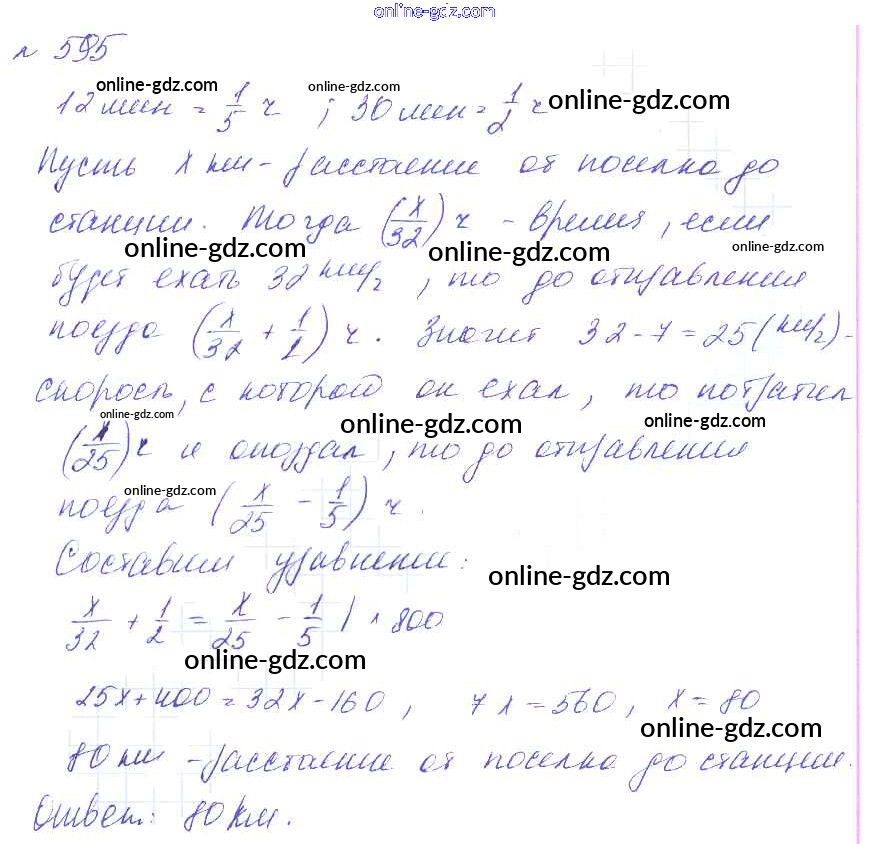 online-gdz.com
№ 595
online-gdz.com online-gdz.com
12 мин = 1/5 ч ; 30 мин = 1/2 ч online-gdz.com
Пусть x км - расстояние от поселка до
станции. Тогда (x/32) ч - время, если
online-gdz.com online-gdz.com online-gdz.com
будет ехать 32 км/ч, то до отправления
поезда (x/32 + 1/2) ч. Значит 32 - 7 = 25 (км/ч) -
скорость, с которой он ехал, то потратил
online-gdz.com online-gdz.com online-gdz.com
(x/25) ч и опоздал, то до отправления
online-gdz.com
поезда (x/25 - 1/5) ч.
Составим уравнение:
online-gdz.com
x/32 + 1/2 = x/25 - 1/5 | · 800
online-gdz.com
25x + 400 = 32x - 160, 7x = 560, x = 80
online-gdz.com
80 км - расстояние от поселка до станции.
Ответ: 80 км.